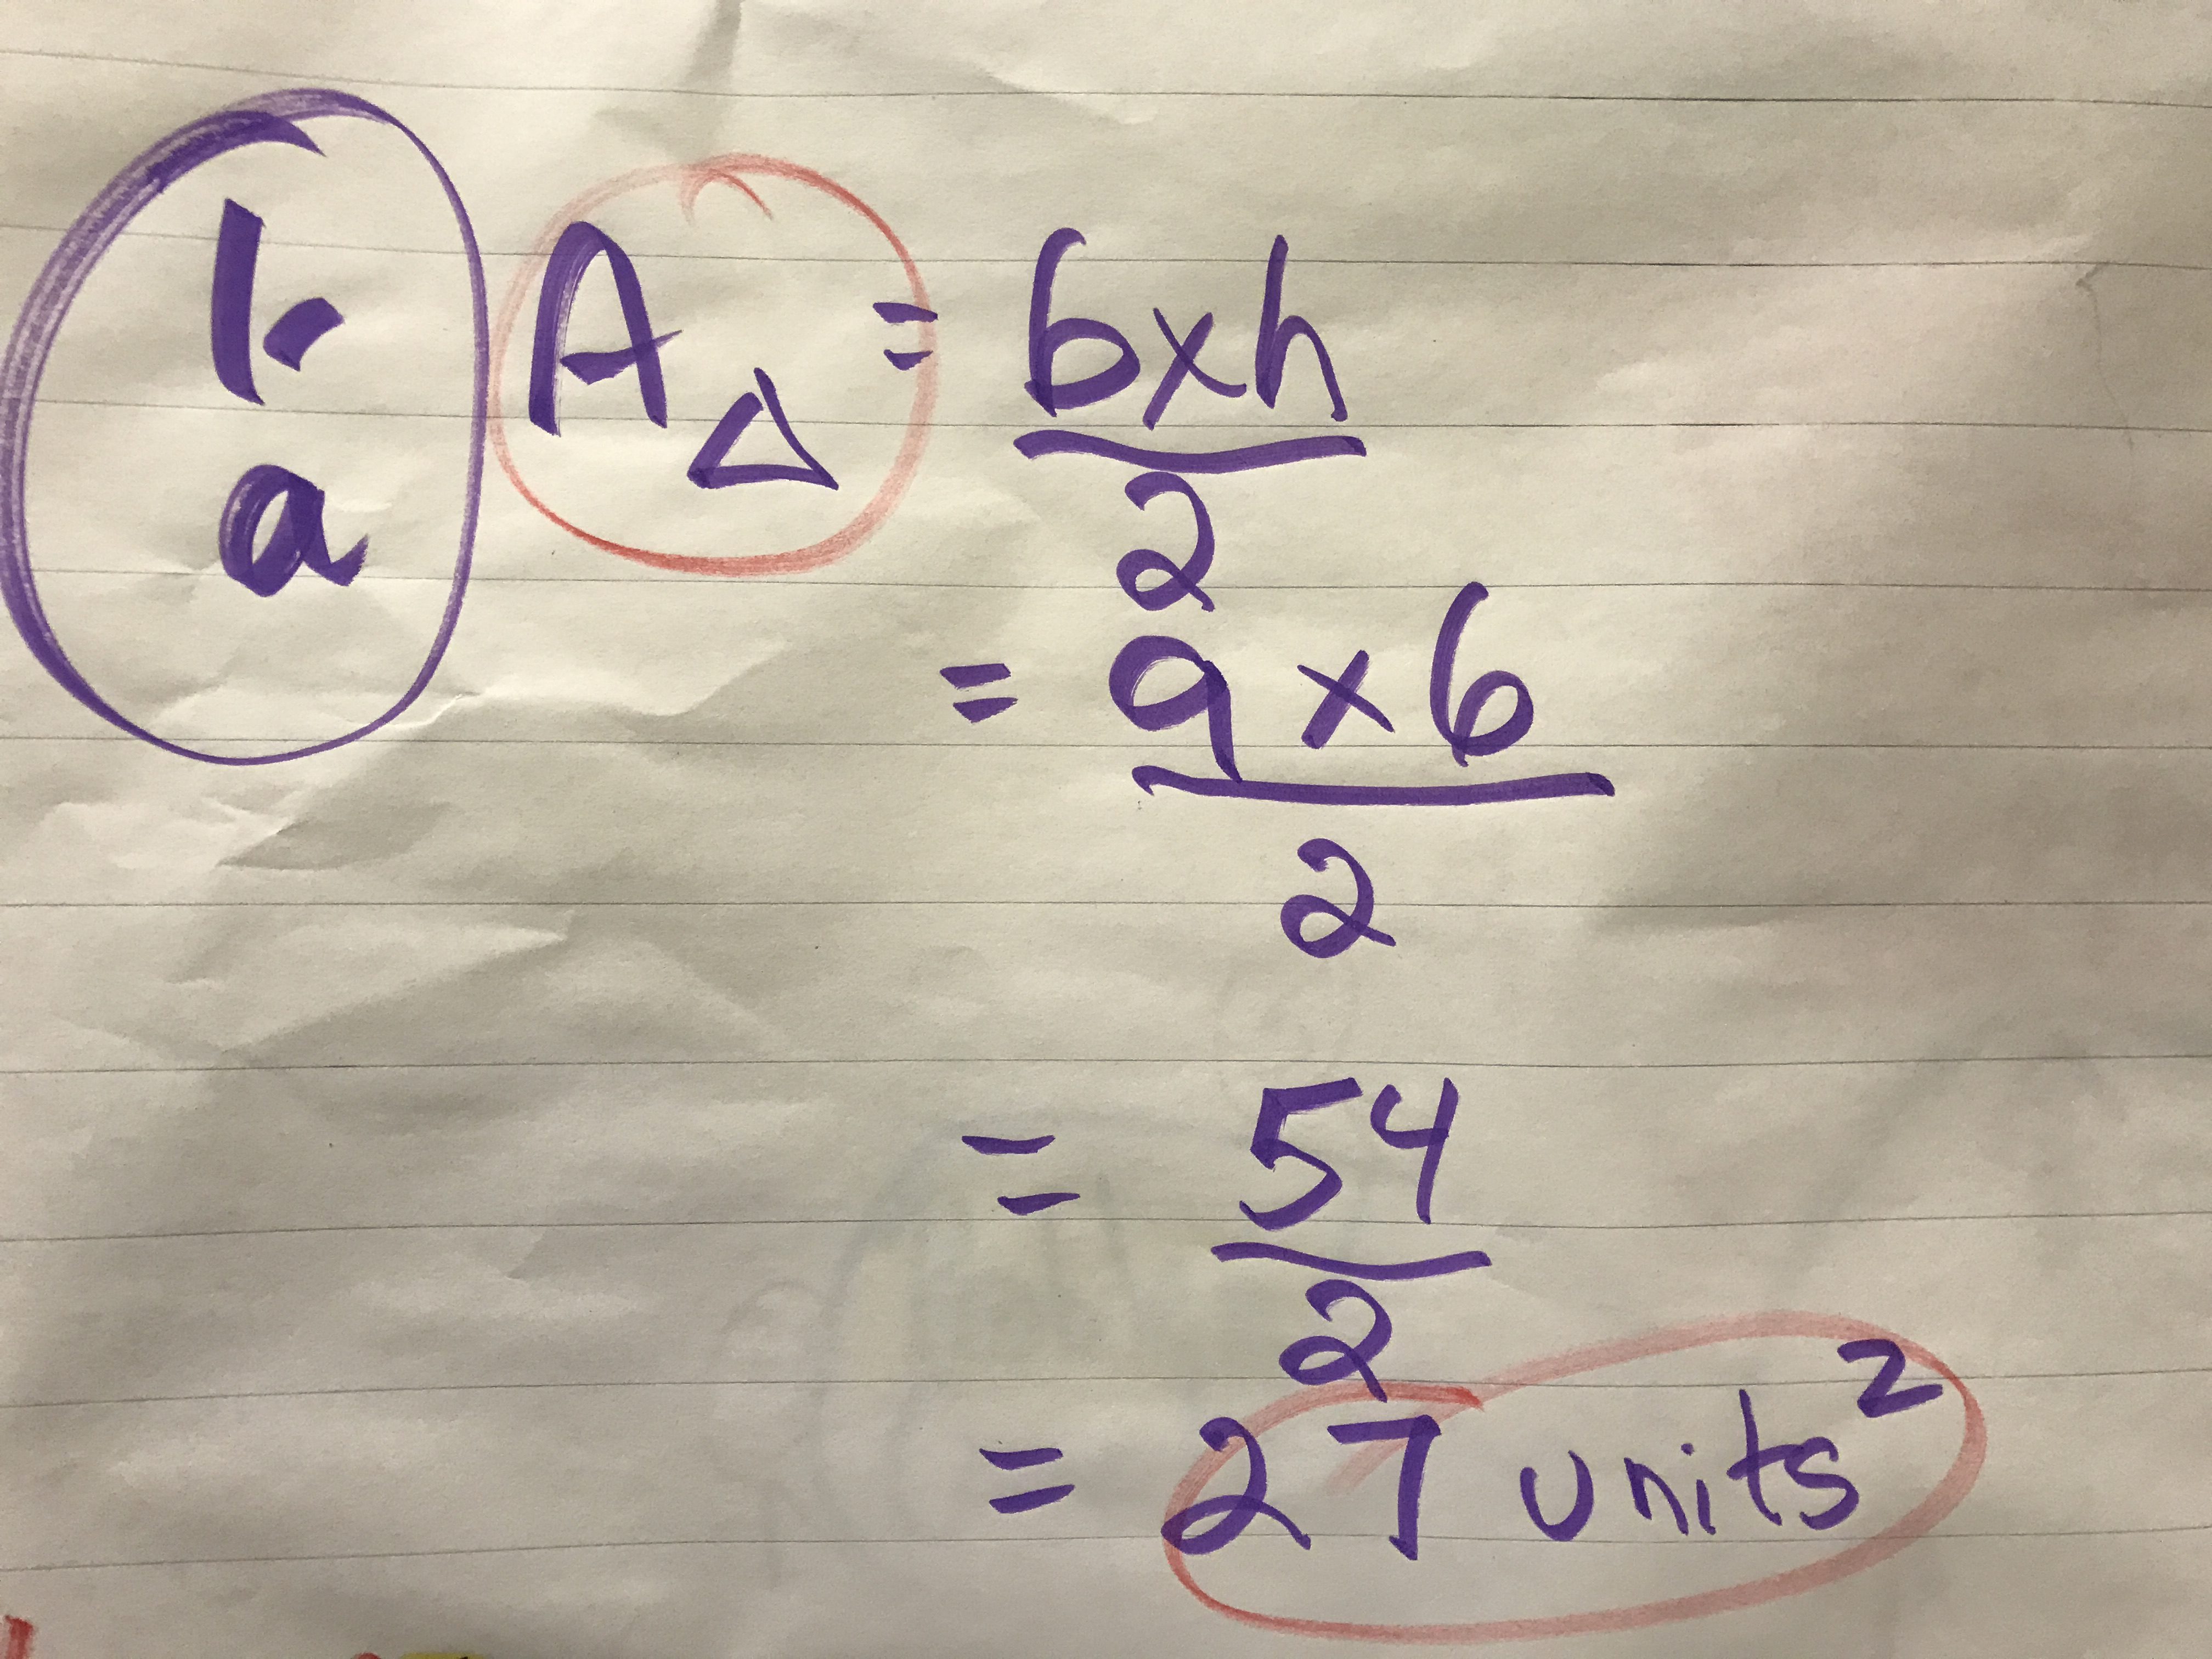 1.
a
A△ = b×h
2
= 9 × 6
2
= 54
2
= 27 units²